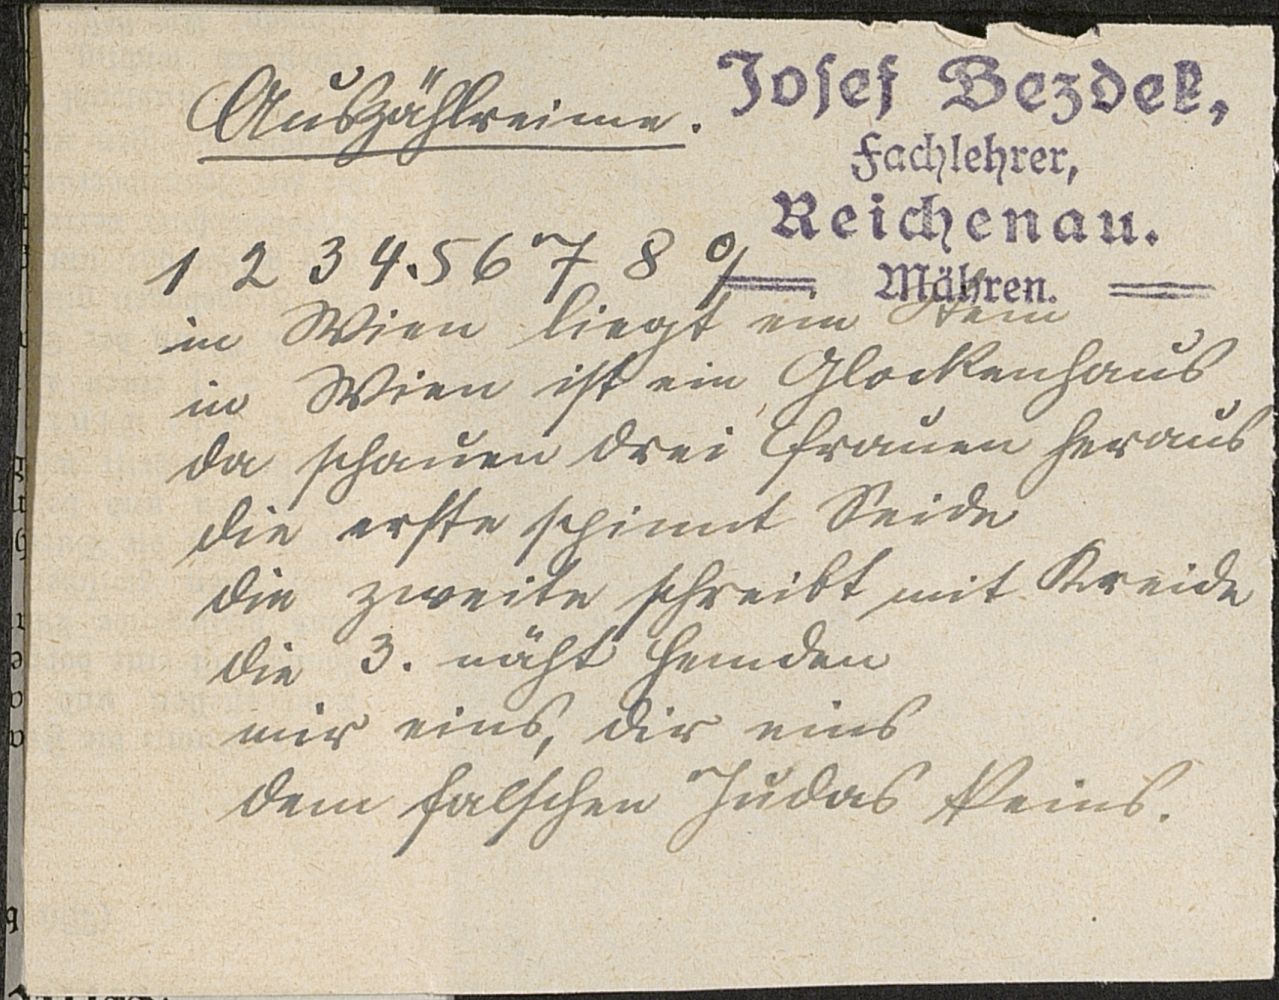 Auszählreime.
Josef Bezdek,
Fachlehrer,
Reichenau.
Mähren.
1 2 3 4. 5 6 7 8 9
in Wien liegt ein Stein
in Wien ist ein Glockenhaus
da schauen drei Frauen heraus
die erste spinnt Seide
die zweite schreibt mit Kreide
die 3. näht Hemden
mir eins, dir eins
dem falschen Judas keins.